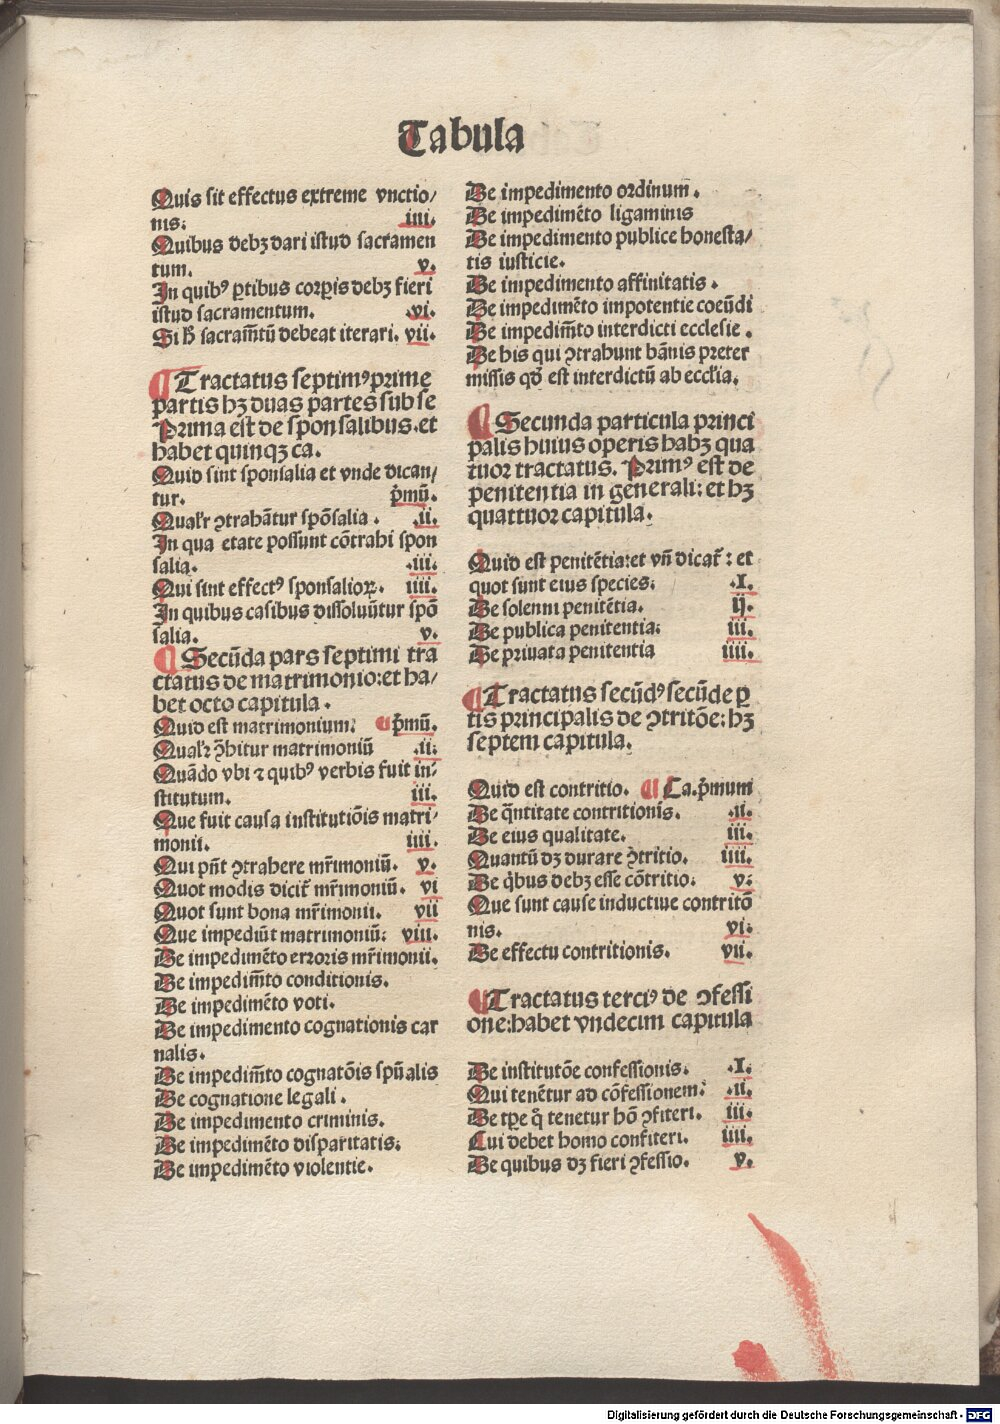 Tabula
Quis sit effectus extreme vnctio/
nis: iiii.
Quibus debꝫ dari istud sacramen
tum. v.
In quibꝰ ꝑtibus corꝑis debꝫ fieri
istud sacramentum. .vi.
Si h̄ sacram̄tū debeat iterari. vii.
¶ Tractatus septimꝰ prime
partis hꝫ duas partes sub se
Prima est de sponsalibus. et
habet quinqꝫ ca.
Quid sint sponsalia et vnde dican/
tur. p̄mū.
Qualr̄ ꝯtrahātur spōsalia. .ii.
In qua etate possunt cōtrahi spon
salia. .iii.
Qui sint effectꝰ sponsalioꝝ. iiii.
In quibus casibus dissoluūtur spō
salia. v.
¶ Secūda pars septimi tra
ctatus de matrimonio: et ha/
bet octo capitula.
Quid est matrimonium: ¶ p̄mū.
Qualr̄ ꝓhibitur matrimoniū .ii:
Quādo vbi ⁊ quibꝰ verbis fuit in/
stitutum. iii.
Que fuit causa institutiōis matri/
monii. iiii.
Qui pn̄t ꝯtrahere mr̄imoniū. v.
Quot modis dicit᷑ mr̄imoniū. vi
Quot sunt bona mr̄imonii. vii
Que impediūt matrimoniū: viii.
De impedimēto erroris mr̄imonii.
De impedim̄to conditionis.
De impedimēto voti.
De impedimento cognationis car
nalis.
De impedim̄to cognatōis spūalis
De cognatione legali.
De impedimento criminis.
De impedimēto disparitatis:
De impedimēto violentie.
De impedimento ordinum.
De impedimēto ligaminis
De impedimento publice honesta/
tis iusticie.
De impedimento affinitatis.
De impedimēto impotentie coeūdi
De impedim̄to interdicti ecclesie.
De his qui ꝯtrahunt bānis preter
missis qđ est interdictū ab ecclīa.
¶ Secunda particula princi
palis huius operis habꝫ qua
tuor tractatus. Primꝰ est de
penitentia in generali: et hꝫ
quattuor capitula.
Quid est penitētia: et vn̄ dicat᷑: et
quot sunt eius species: .I.
De solenni penitētia. ij.
De publica penitentia: iii.
De priuata penitentia iiii.
¶ Tractatus secūdꝰ secūde ꝑ
tis principalis de ꝯtritōe: hꝫ
septem capitula.
Quid est contritio. ¶ Ca. p̄mum
De q̄ntitate contritionis. .ii.
De eius qualitate. iii.
Quantū dꝫ durare ꝯtritio. iiii.
De q̇bus debꝫ esse cōtritio: v:
Que sunt cause inductiue contritō
nis. vi:
De effectu contritionis. vii.
¶ Tractatus terciꝰ de ꝯfessi
one: habet vndecim capitula
De institutōe confessionis. .I.
Qui tenētur ad cōfessionem: .ii.
De tꝑe q̇ tenetur hō ꝯfiteri. iii.
Cui debet homo confiteri. iiii.
De quibus dꝫ fieri ꝯfessio. v.
Digitalisierung gefördert durch die Deutsche Forschungsgemeinschaft - DFG